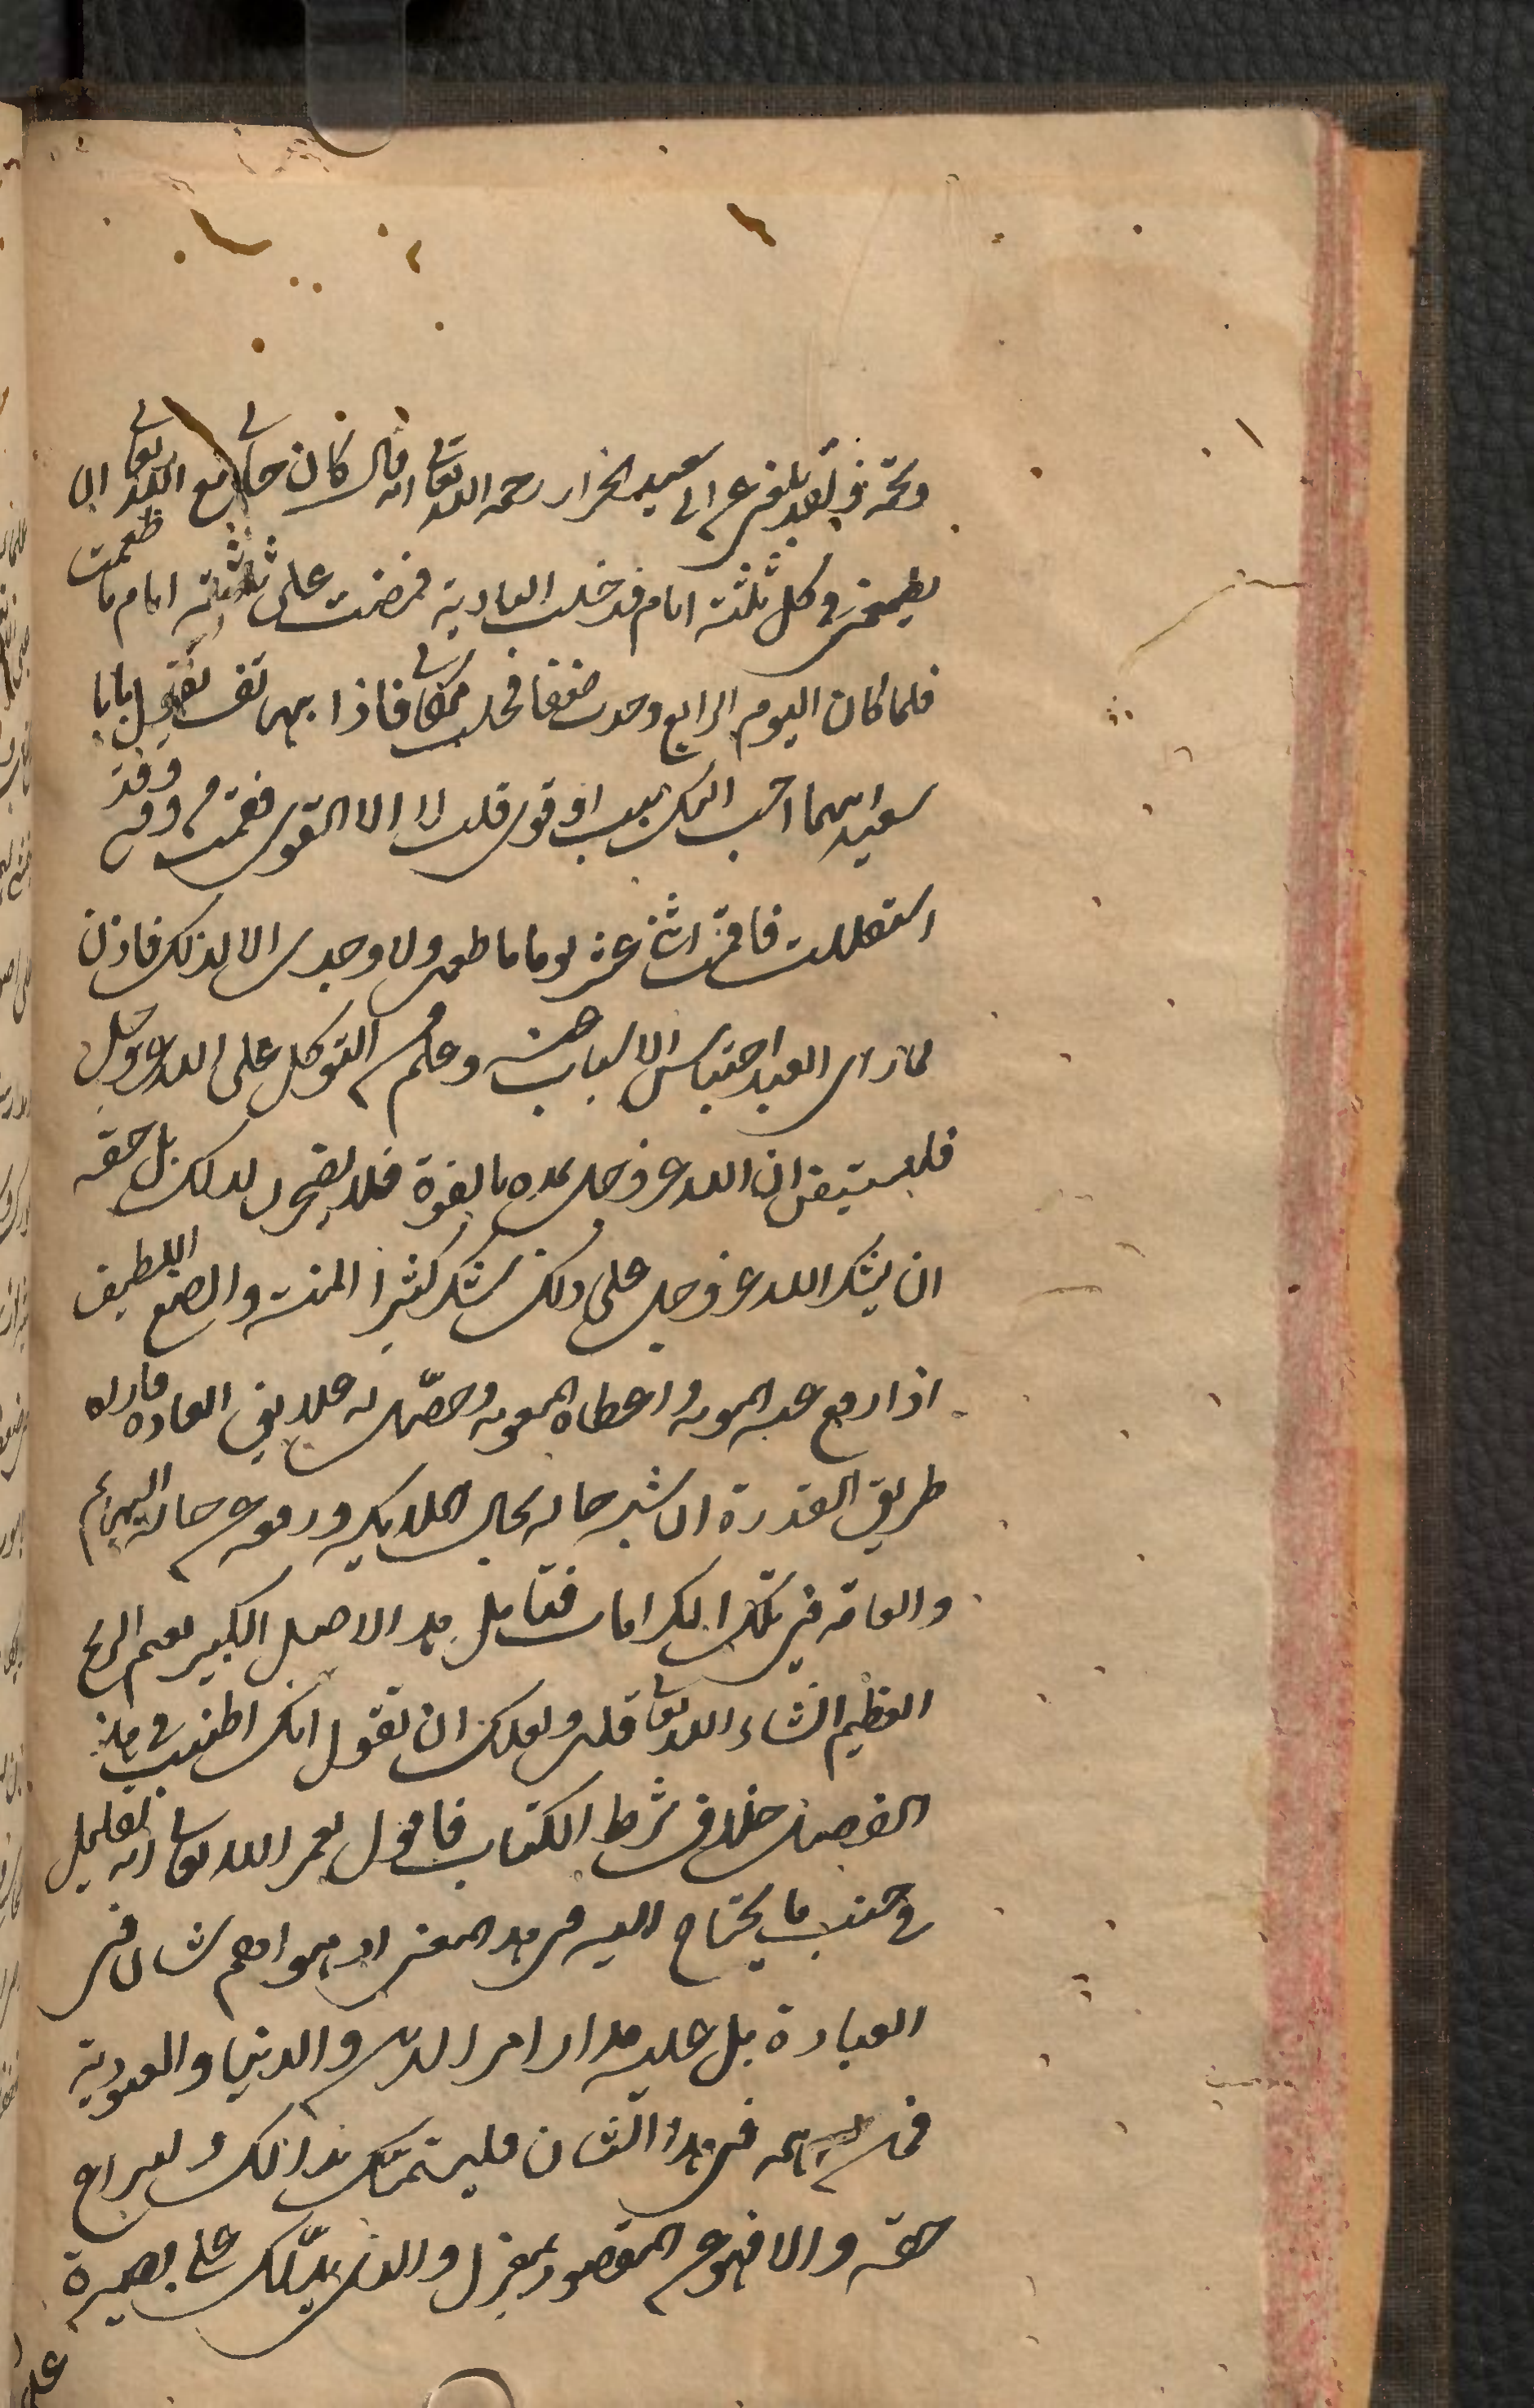 ولقد بلغنى عن ابى سعيد الخراز رحمه الله تعالى انه قال كان حالى مع الله تعالى ان
يطعمنى فى كل ثلثة ايام فدخلت البادية فمضت على ثلثة ايام ما طعمت
فلما كان اليوم الرابع وجدت ضعفا فجلست مكانى فاذا بهاتف يقول يا با
سعيد ايهما احب اليك سبب او قوى قلت لا الا القوى فقمت من وقتى وقد
استقللت فاقمت اثنى عشر يوما ما طعمت ولا وجدت الا لذلك فاذن
لما راى العبد احتباس الاسباب عنه وعلم من التوكل على الله عز وجل
فليستيقن ان الله عز وجل يمده بالقوة فلا يضجرن لذلك بل حقه
ان يشكر الله عز وجل على ذلك شكر كثيرا المنة والصنع اللطيف
اذا رفع عنه المونة واعطاه المعونة وحصل له خلاف العادة واراه
طريق القدرة ان شبه حاله بحال الملايكة ورفعه عن حالة البهايم
والعامة فى تلك الكرامات فتامل هذا الاصل الكبير تغنم الربح
العظيم انشاء الله تعالى قلت ولعلك ان تقول انك اطنبت فى هذا
الفصل خلاف شرط الكتاب فاقول لعمر الله تعالى انه لقليل
فى جنب ما يحتاج اليه فى هذا المعنى اذ هو اهم شان فى
العبادة بل عليه مدار امر الدين والدنيا والعبودية
فمن له همة فى هذا الشان فليستمسك بذالك وليراع
حقه والا فهو عن المقصود بمعزل والذى يدلك على بصيرة